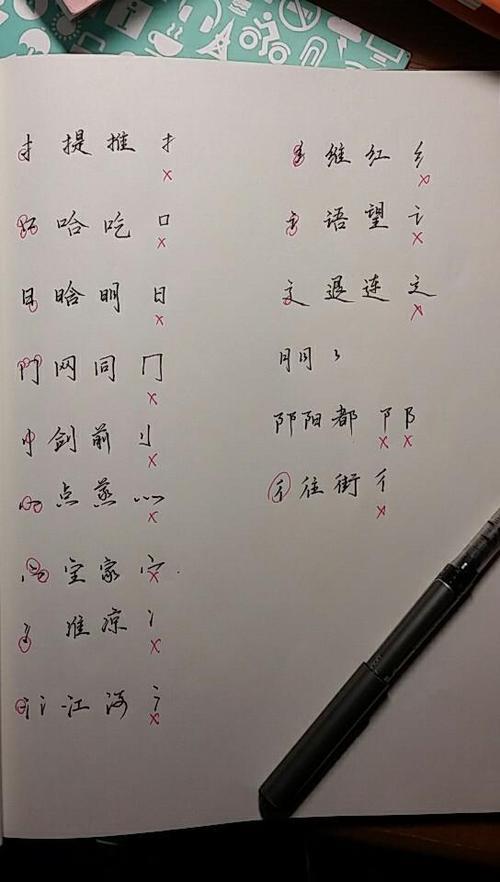 扌 提 推 扌
口 哈 吃 口
日 晗 明 日
冂 网 同 冂
刂 剑 前 刂
灬 点 蒸 灬
宀 室 家 宀
冫 准 凉 冫
氵 氵 江 海 氵
纟 维 红 纟
讠 语 望 讠
辶 退 连 辶
阝 阳 都 阝 阝
彳 往 街 彳